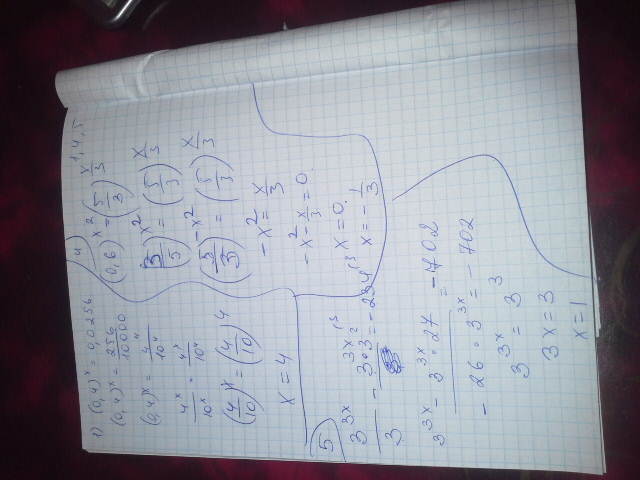 1) (0,4)^x = 0,0256
(0,4)^x = 256/10000
(0,4)^x = 4^4/10^4
4^x/10^x = 4^4/10^4
(4/10)^x = (4/10)^4
x = 4
4)
1, 4, 5
(0,6)^x^2 = (5/3)^x/3
(3/5)^x^2 = (5/3)^x/3
(5/3)^-x^2 = (5/3)^x/3
-x^2 = x/3
-x^2 - x/3 = 0
x = 0
x = -1/3
5
3^3x/3 - 3^3x · 3^2 = -234
3^3x - 3^3x · 27 = -702
-26 · 3^3x = -702
3^3x = 3^3
3x = 3
x = 1